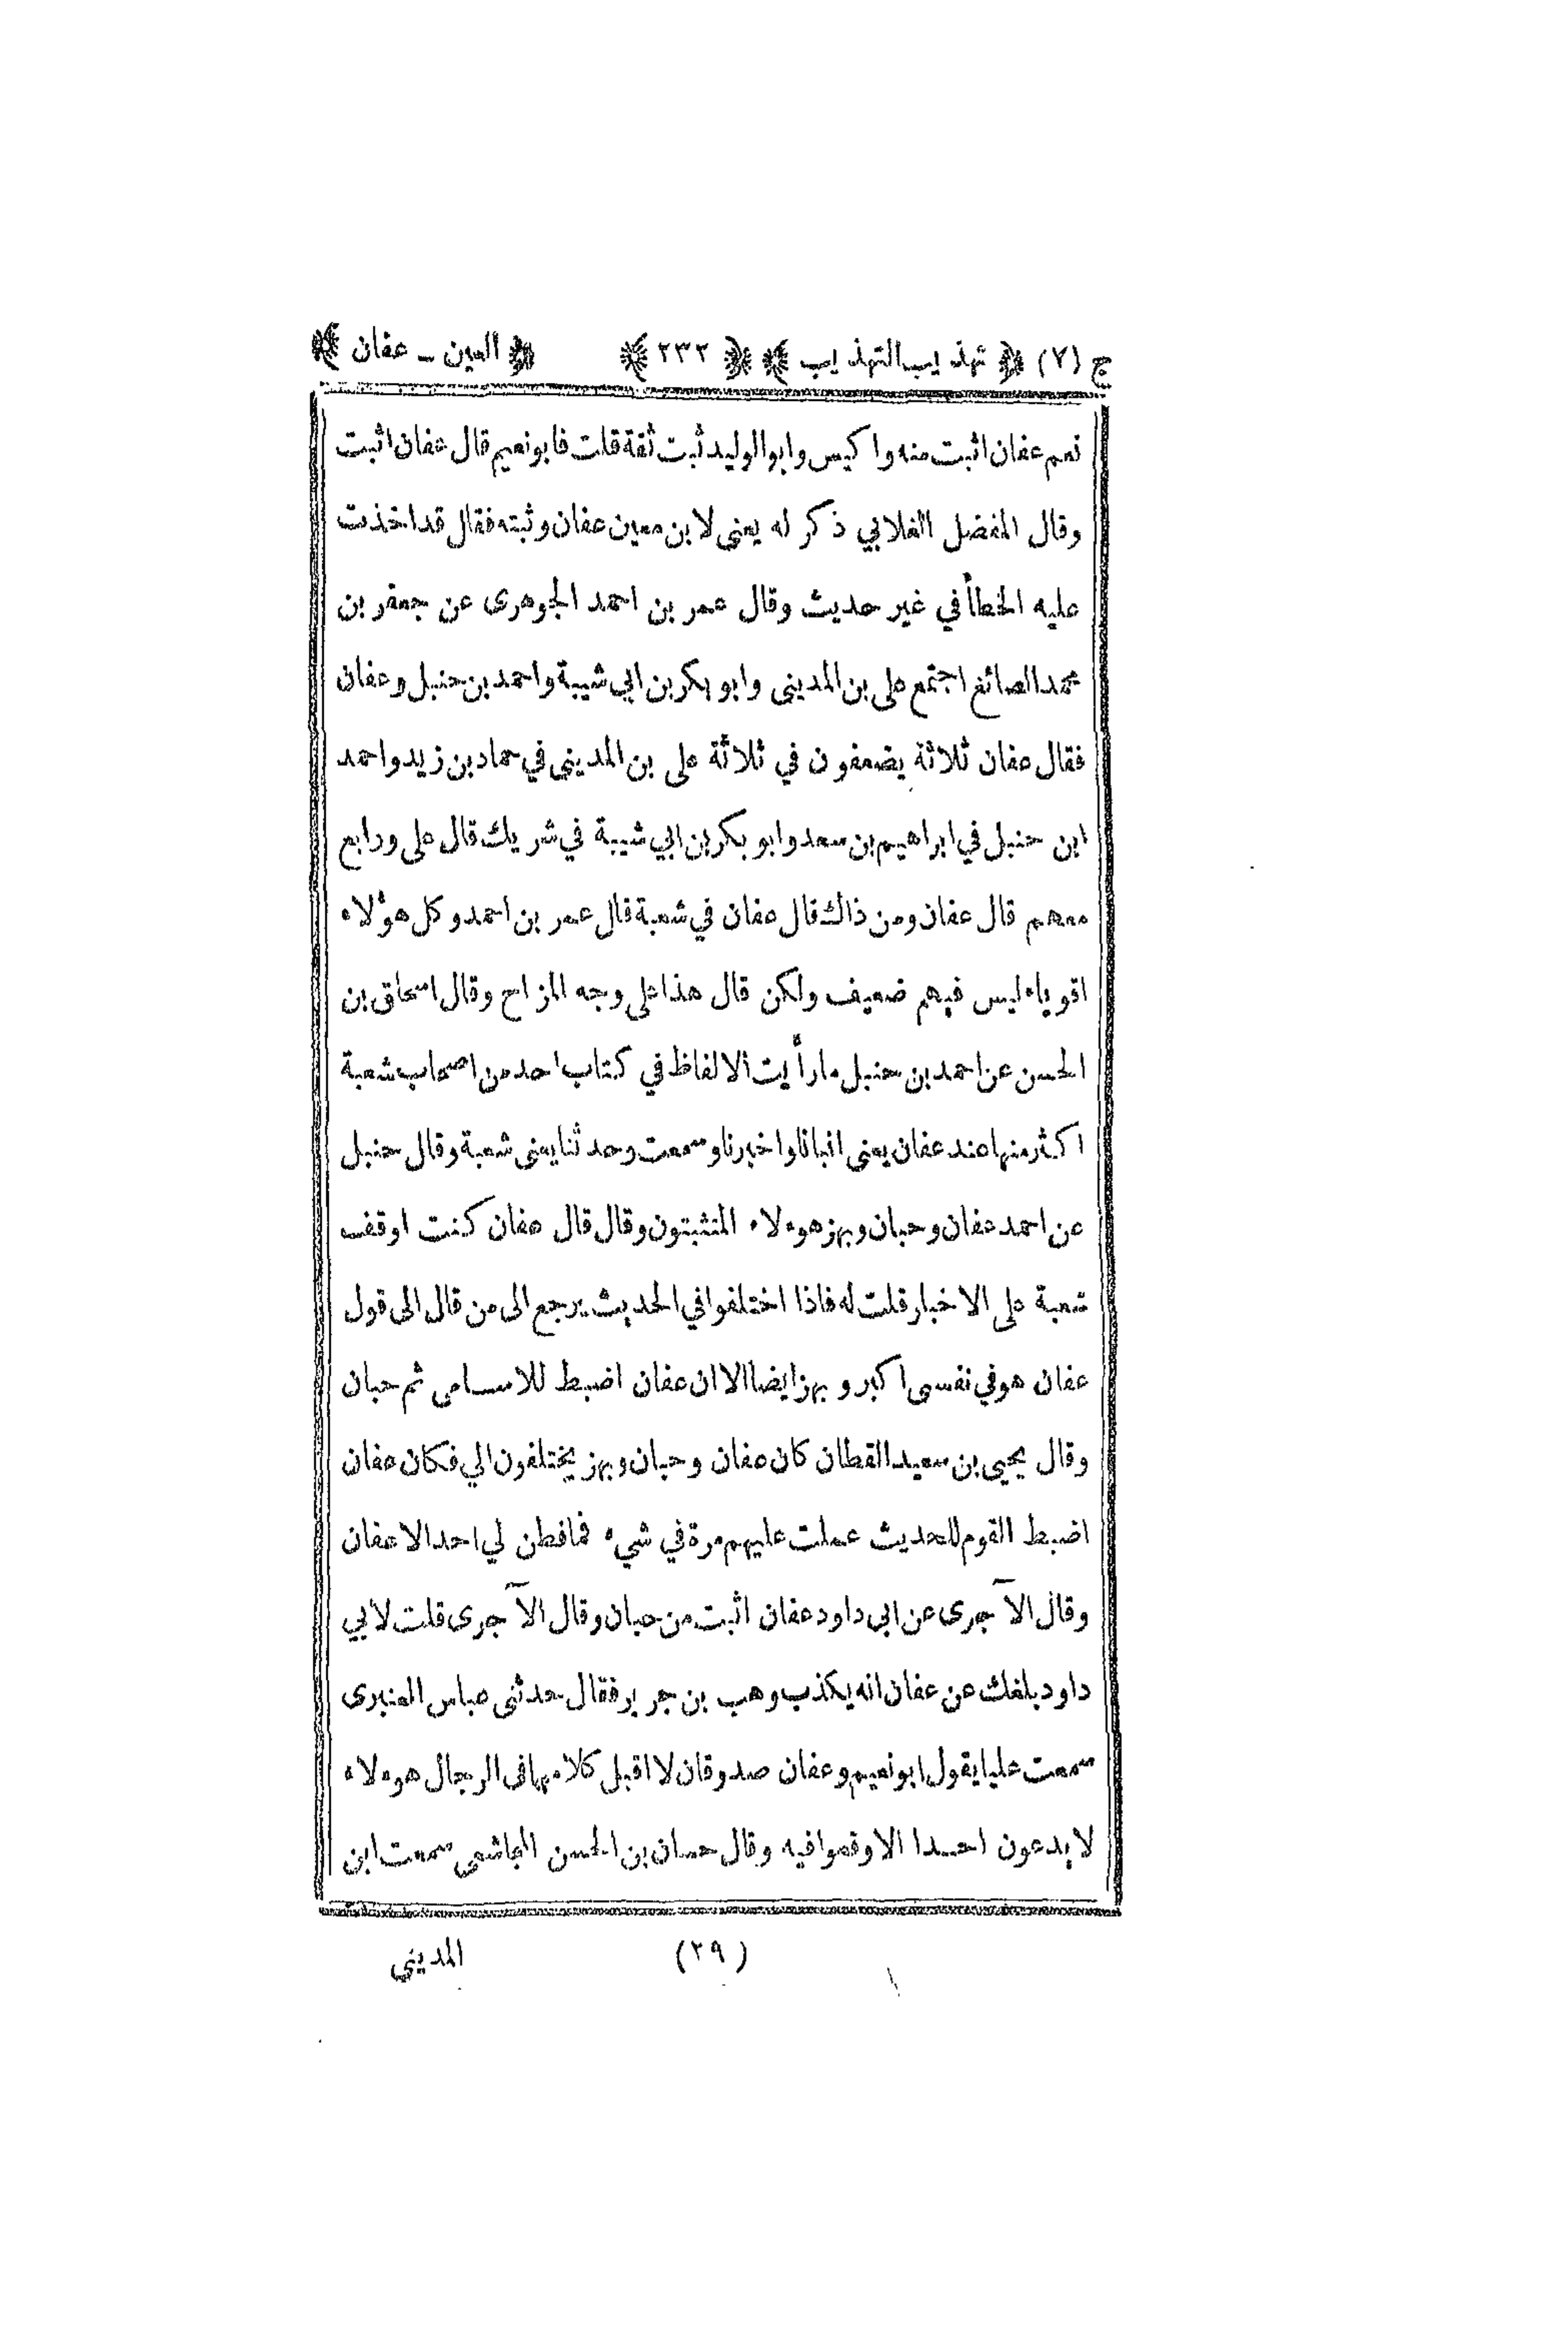 ج (٧) ﴿ تهذيب التهذيب ﴾ ﴿ ٢٣٢ ﴾ ﴿ العين ـ عفان ﴾
نعم عفان اثبت منه واكيس وابوالوليد ثبت ثقة قلت فابونعيم قال عفان اثبت
وقال المفضل الغلابي ذكر له يعنى لابن معين عفان وثبته فقال قد اخذت
عليه الخطأ في غير حديث وقال عمر بن احمد الجوهرى عن جعفر بن
محمد الصائغ اجتمع على بن المدينى وابو بكر بن ابي شيبة واحمد بن حنبل وعفان
فقال عفان ثلاثة يضعفون في ثلاثة على بن المدينى في حماد بن زيد واحمد
ابن حنبل في ابراهيم بن سعد وابو بكر بن ابي شيبة في شريك قال على ورابع
معهم قال عفان ومن ذاك قال عفان في شعبة قال عمر بن احمد وكل هؤلاء
اقوياء ليس فيهم ضعيف ولكن قال هذا على وجه المزاح وقال اسحاق بن
الحسن عن احمد بن حنبل ما رأيت الالفاظ في كتاب احد من اصحاب شعبة
اكثر منها عند عفان يعنى انبانا واخبرنا وسمعت وحدثنا يعنى شعبة وقال حنبل
عن احمد عفان وحبان وبهز هوءلاء المتثبتون وقال قال عفان كنت اوقف
شعبة على الاخبار قلت له فاذا اختلفوا في الحديث يرجع الى من قال الى قول
عفان هو في نفسى اكبر و بهز ايضا الا ان عفان اضبط للاسامى ثم حبان
وقال يحيى بن سعيد القطان كان عفان وحبان وبهز يختلفون الي فكان عفان
اضبط القوم للحديث عملت عليهم مرة في شيء فما فطن لي احد الا عفان
وقال الآجرى عن ابى داود عفان اثبت من حبان وقال الآجرى قلت لابي
داود بلغك عن عفان انه يكذب وهب بن جرير فقال حدثنى عباس العنبرى
سمعت عليا يقول ابونعيم وعفان صدوقان لا اقبل كلامهما فى الرجال هوءلاء
لا يدعون احدا الا وقعوا فيه وقال حسان بن الحسن المجاشعى سمعت ابن
(٢٩) المدينى